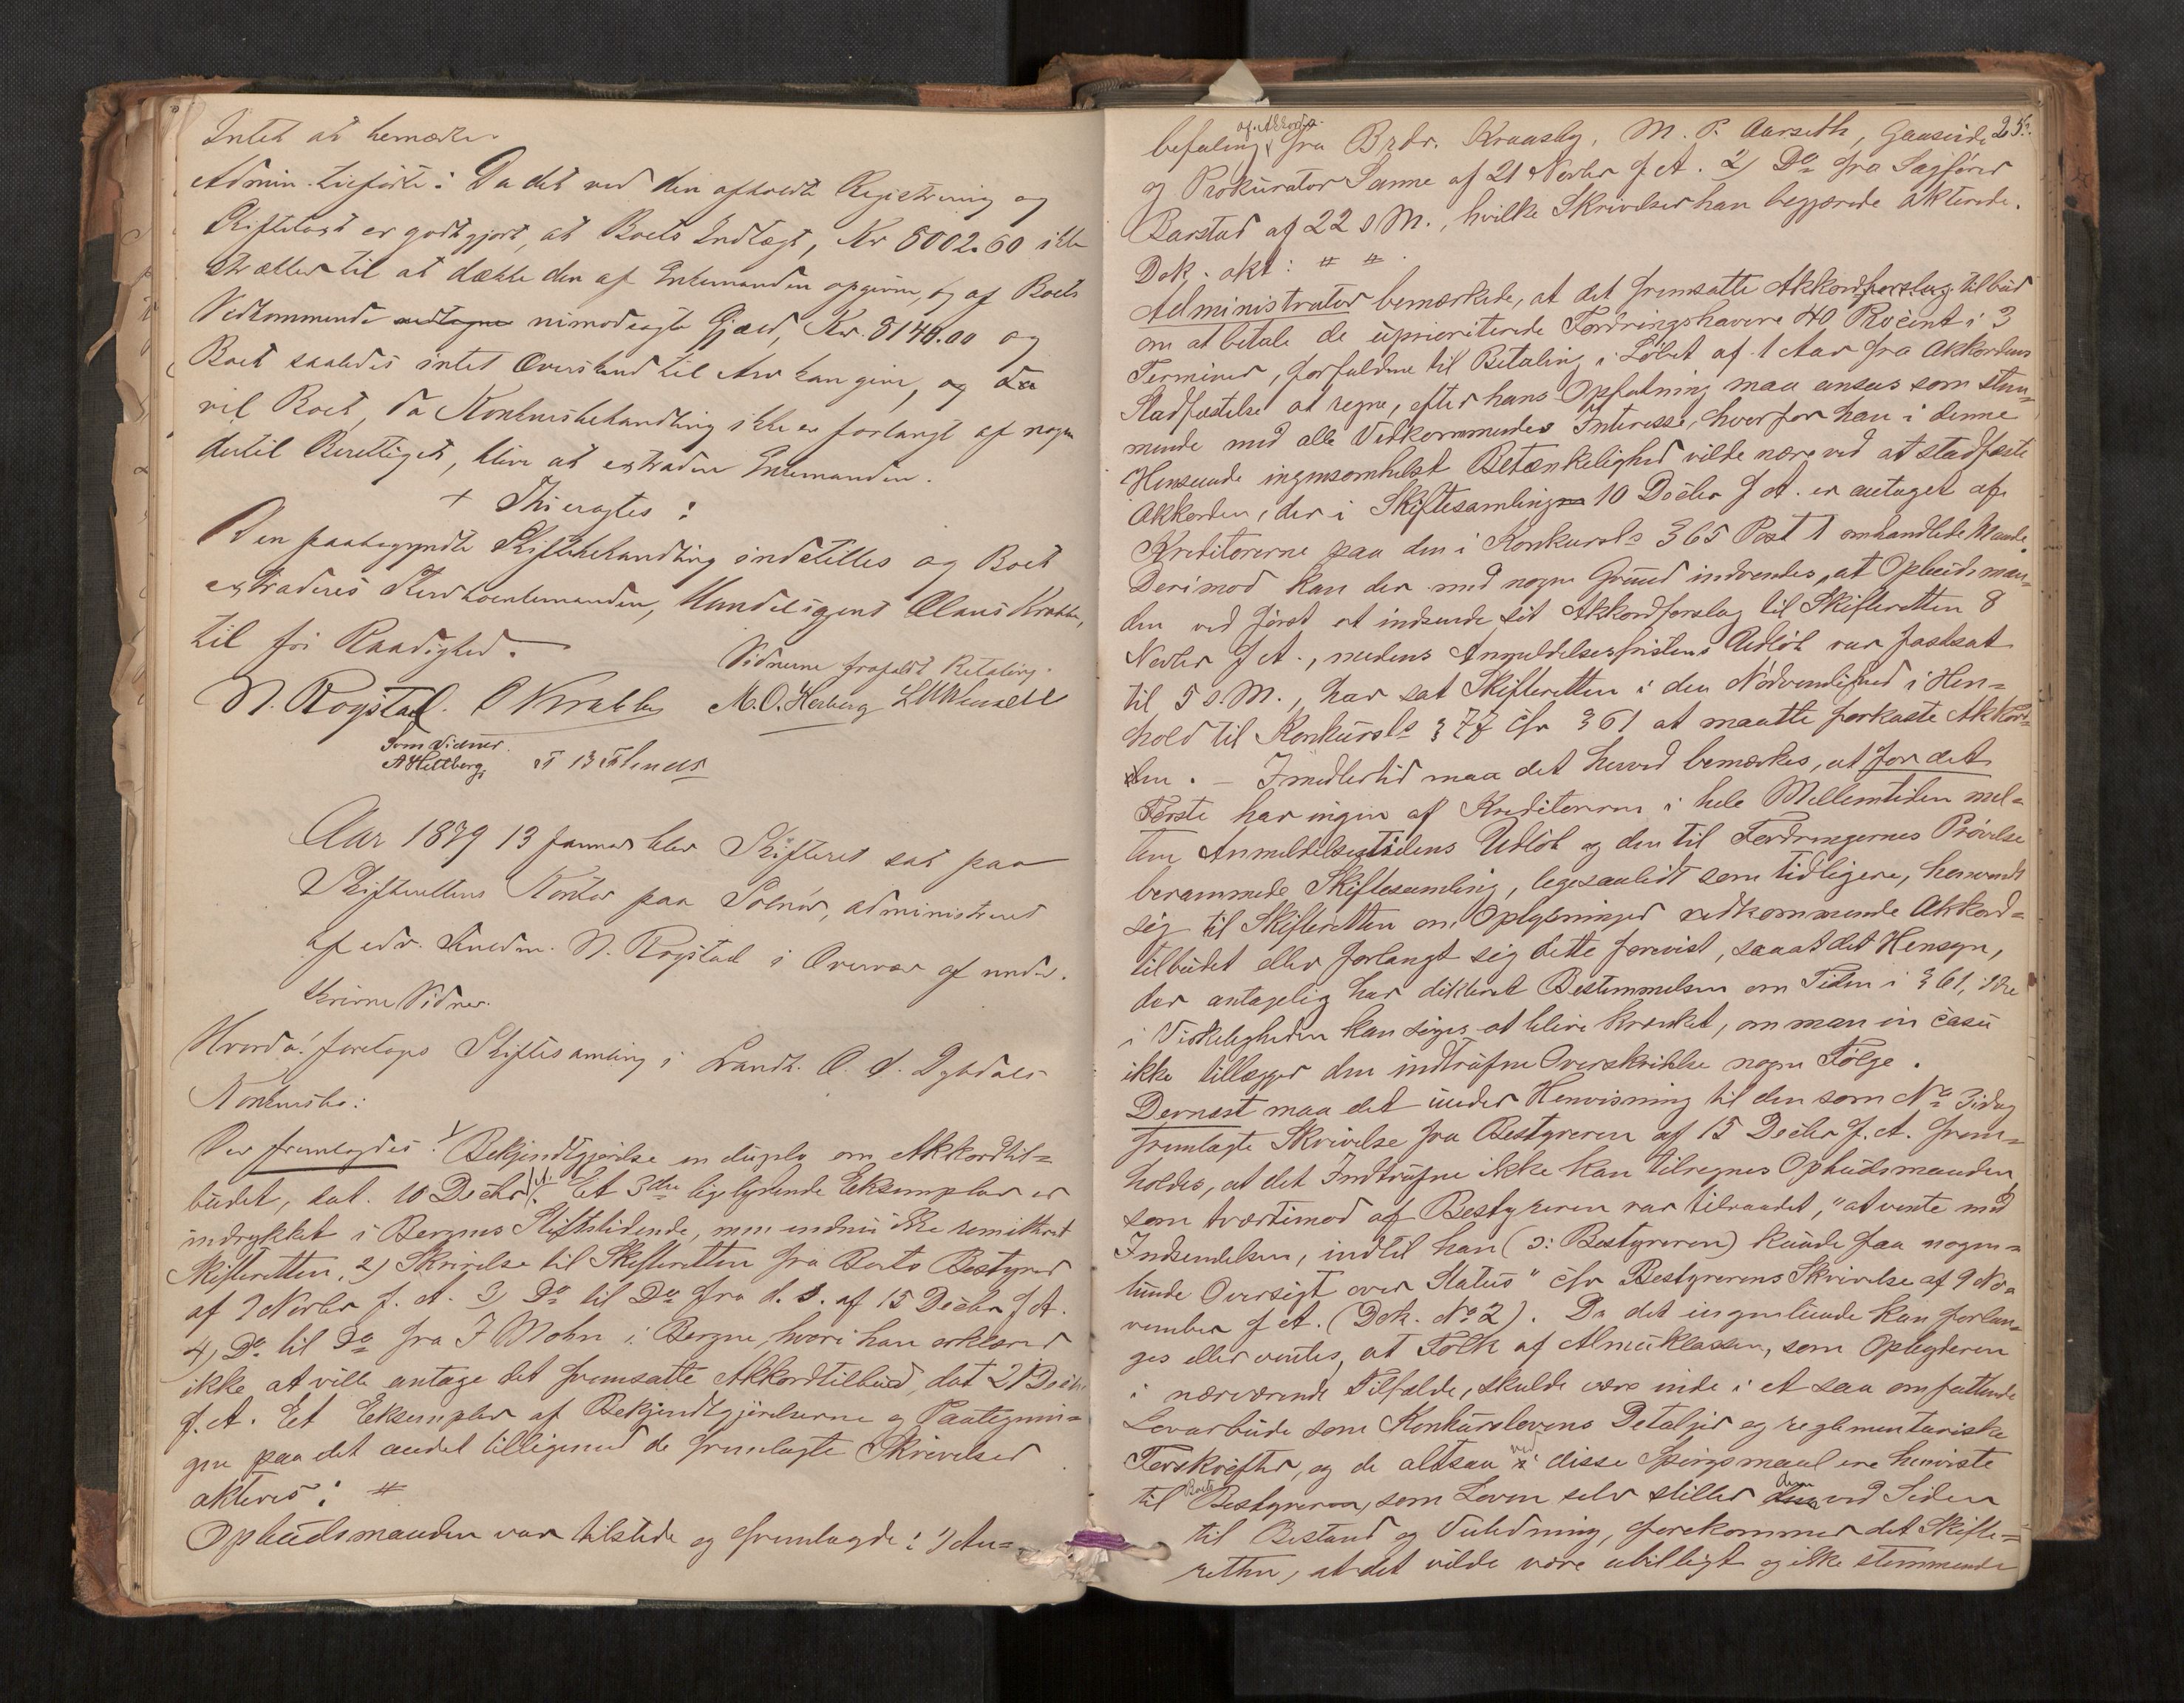 Intet at bemærke.
Admin. tilførte: Da det ved den afholdte Registrering og
Skiftetaxt er godtgjort, at Boets Indtægt, Kr 5002.60 ikke
strækker til at dække den af Enkemanden opgivne, og af Boets
Vedkommende vedtagne nimodsagte Gjæld, Kr. 5146.00 og
Boet saaledes intet Overskud til Arv kan give, og da
vil Boet, da Konkursbehandling ikke er forlangt af nogen
dertil Berettiget, blive at extradere Enkemanden.
+ Thi eragtes:
Den paabegyndte Skiftebehandling indstilles og Boet
extraderes Stervboenkemanden, Handelsagent Olaus Krabbe,
til fri Raadighed.
Vidnerne frafaldt Betaling.
N. Rogstad. O Krabbe M. O. Herberg
Som Vidner.
A Hellberg
Aar 1879 13 Januar blev Skifteret sat paa
Skifterettens Kontor paa Solnør, administreret
af edsv. Fuldm. N. Rogstad i Overvær af under-
skrevne Vidner.
Hvorda: foretoges Skiftesamling i Landh. O. A. Dybdals
Konkursbo:
Der fremlagdes: 1/ Bekjendtgjørelse in duplo om Akkordtil=
budet, dat. 10 Decbr f. A. Et 3die ligelydende Eksemplar er
indrykket i Bergens Stiftstidende, men endnu ikke remitteret
Skifteretten, 2) Skrivelse til Skifteretten fra Boets Bestyrer
af 9 Novbr f. A. 3) Do til Do fra d. s. af 15 Decbr f A.
4) Do til Do fra J Mohn i Bergen, hvori han erklærer
ikke at ville antage det fremsatte Akkordtilbud, dat 21 Decbr
f. A. Et Eksemplar af Bekjendtgjørelserne og Paategnin=
gen paa det andet tilligemed de fremlagte Skrivelser
akteres: #
Opbudsmanden var tilstede og fremlagde: 1) An=
25.
af Akkorden
befaling fra Brdr. Kraasby, M. P. Aarseth, Gaaseide
og Prokurator Sanne af 21 Novbr f A. 2) Do fra Sagfører
Barstad af 22 s M., hvilke Skrivelser han begjærede akterede.
Dok. akt: # #.
Administrator bemærkede, at det fremsatte Akkordforslag tilbud
om at betale de uprioriterede Fordringshavere 40 Procent i 3
Terminer, forfaldne til Betaling i Løbet af 1 Aar fra Akkordens
Stadfæstelse at regne, efter hans Opfatning maa ansees som stem=
mende med alle Vedkommendes Interesse, hvorfor han i denne
Henseende ingensomhelst Betænkelighed vilde nære ved at stadfæste
Akkorden, der i Skiftesamling 10 Decbr f A. er antaget af
Kreditorerne paa den i Konkursls § 65 Post 1 omhandlede Maade.
Derimod kan der med nogen Grund indvendes, at Opbudsman=
den ved først at indsende sit Akkordforslag til Skifteretten 8
Novbr f A., medens Anmeldelsesfristens Udløb var fastsat
til 5 s. M., har sat Skifteretten i den Nødvendighed i Hen=
hold til Konkursls § 77 cfr § 61 at maatte forkaste Akkor=
den. – Imidlertid maa det herved bemærkes, at for det
Første har ingen af Kreditorerne i hele Mellemtiden mel=
lem Anmeldelsestidens Udløb og den til Fordringernes Prøvelse
berammede Skiftesamling, ligesaalidt som tidligere, henvendt
sig til Skifteretten om Oplysninger vedkommende Akkord=
tilbudet eller forlangt sig dette forevist, saaat det Hensyn,
der antagelig har dikteret Bestemmelsen om Tiden i § 61, ikke
i Virkeligheden kan siges at blive krænket, om man in casu
ikke tillægger den indtrufne Overskridelse nogen Følge.
Dernæst maa det under Henvisning til den som No 3 idag
fremlagte Skrivelse fra Bestyreren af 15 Decbr f. A. frem=
holdes, at det Indtrufne ikke kan tilregnes Opbudsmanden,
som tværtimod af Bestyreren var tilraadet, "at vente med
Indsendelsen, indtil han (ɔ: Bestyreren) kunde faa nogen=
lunde Oversigt over Status" cfr Bestyrerens Skrivelse af 9 No=
vember f A. (Dok. No 2). Da det ingenlunde kan forlan=
ges eller ventes, at Folk af Almueklassen, som Opbyderen
i nærværende Tilfælde, skulde være inde i et saa omfattende
Lovarbeide som Konkurslovens Detaljer og reglementariske
Forskrifter, og de altsaa ved disse Spørgsmaal ere henviste
til Boets Bestyreren, som Loven selv stiller dem ved Siden
til Bistand og Veiledning, forekommer det Skifte=
retten, at det vilde være ubilligt og ikke stemmende